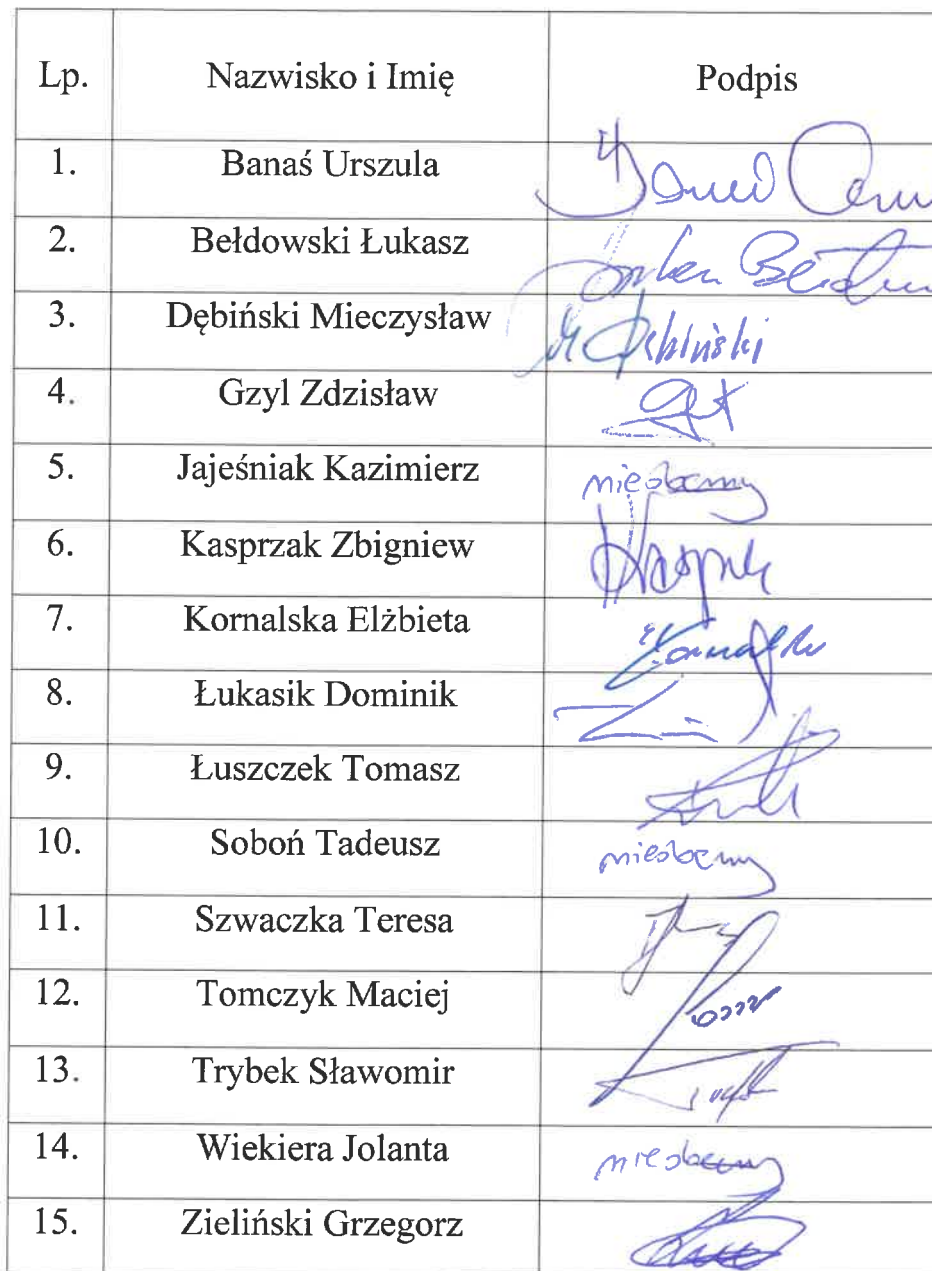 Lp. Nazwisko i Imię Podpis
1. Banaś Urszula
2. Bełdowski Łukasz
3. Dębiński Mieczysław M Dębiński
4. Gzyl Zdzisław
5. Jajeśniak Kazimierz nieobecny
6. Kasprzak Zbigniew
7. Kornalska Elżbieta
8. Łukasik Dominik
9. Łuszczek Tomasz
10. Soboń Tadeusz nieobecny
11. Szwaczka Teresa
12. Tomczyk Maciej
13. Trybek Sławomir
14. Wiekiera Jolanta nieobecny
15. Zieliński Grzegorz